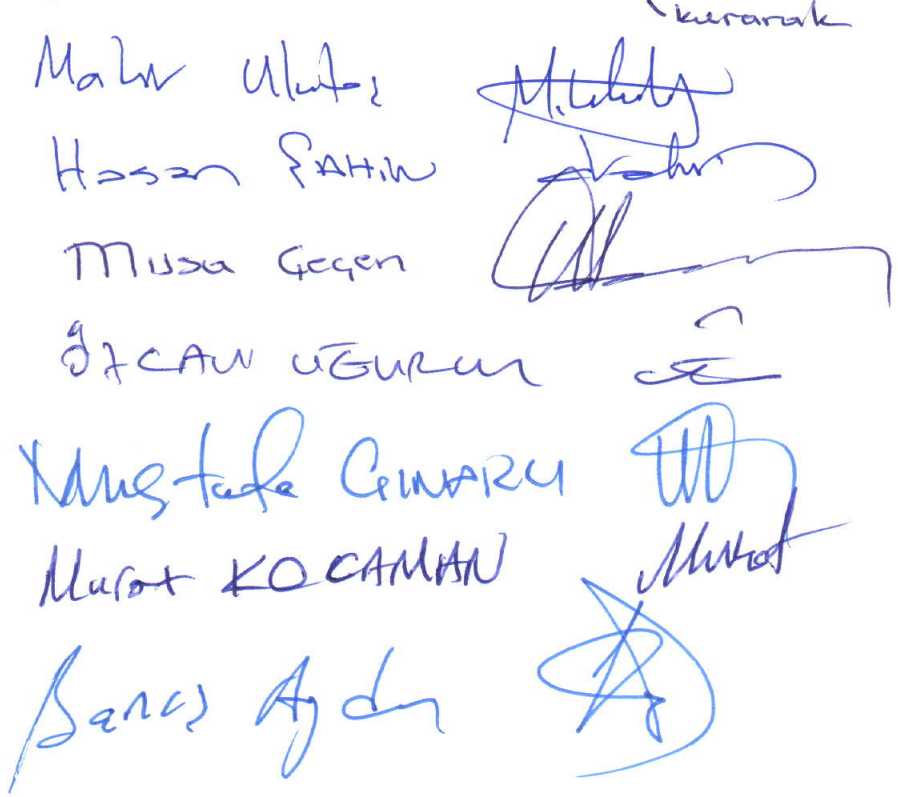 kurarak
Mahir Ulutaş
Hasan ŞAHİN
Musa Geçen
ÖZCAN UĞURLU
Mustafa ÇINARLI
Murat KOCAMAN Murat
Barış Aydın